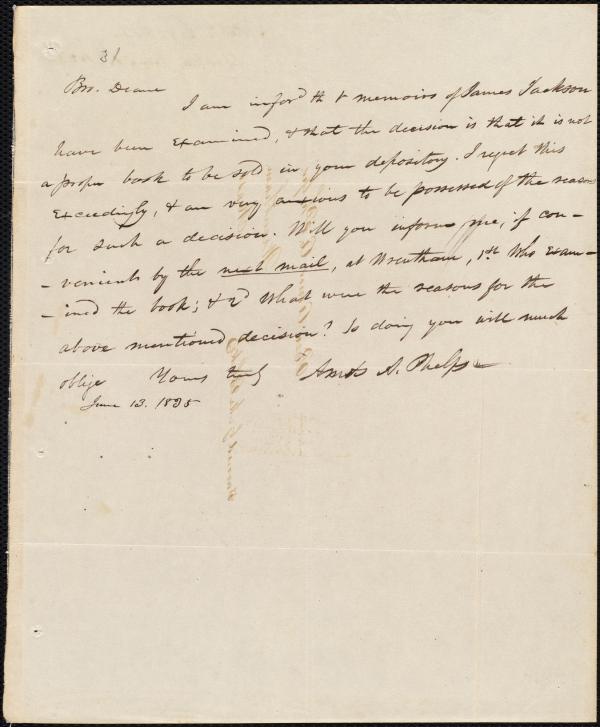 31
Bro. Deane
I am infor'd th t memoirs of James Jackson
have been examined, & that the decision is that it is not
a proper book to be sold in your depository. I regret this
exceedingly, & am very anxious to be possessed of the reasons
for such a decision. Will you inform me, if con-
-venient by the next mail, at Wrentham, 1st Who exam-
-ined the book; & 2d What were the reasons for the
above mentioned decision? So doing you will much
oblige Yours truly Amos A. Phelps
June 13. 1835